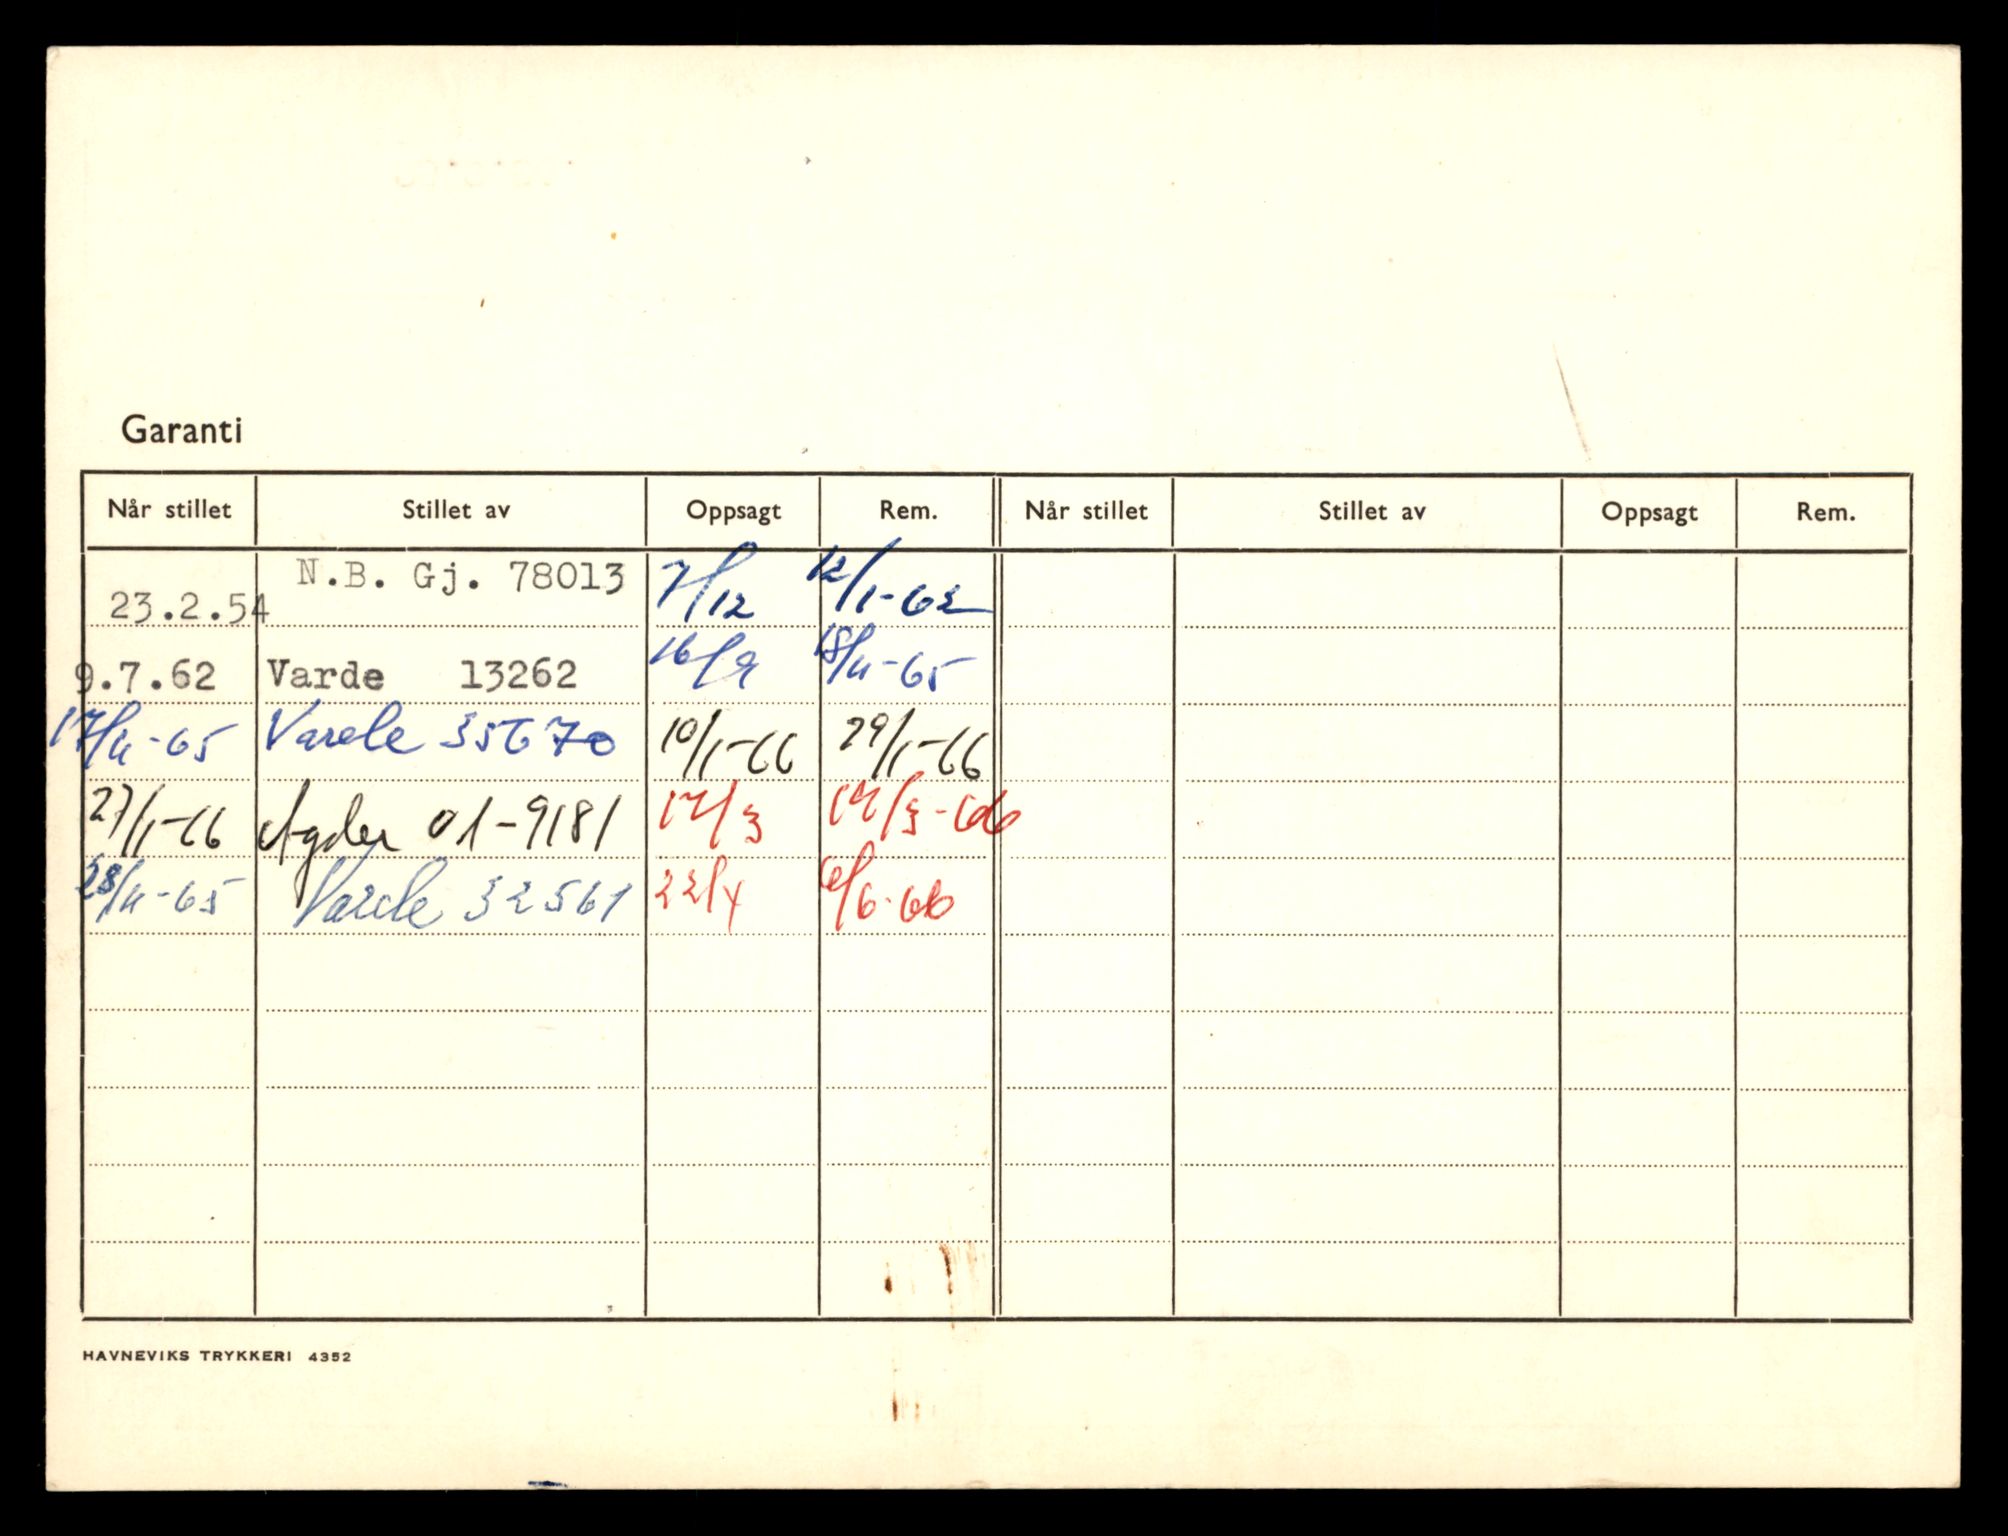 Garanti
Når stillet Stillet av Oppsagt Rem. Når stillet Stillet av Oppsagt Rem.
23.2.54 N.B. Gj. 78013 7/12 12/1-62
9.7.62 Varde 13262 16/9 18/11-65
17/11-65 Varde 35670 10/1-66 29/1-66
27/1-66 Agder 01-9181 17/3 17/3-66
28/11-65 Varde 32561 22/4 6/6-66
HAVNEVIKS TRYKKERI 4352